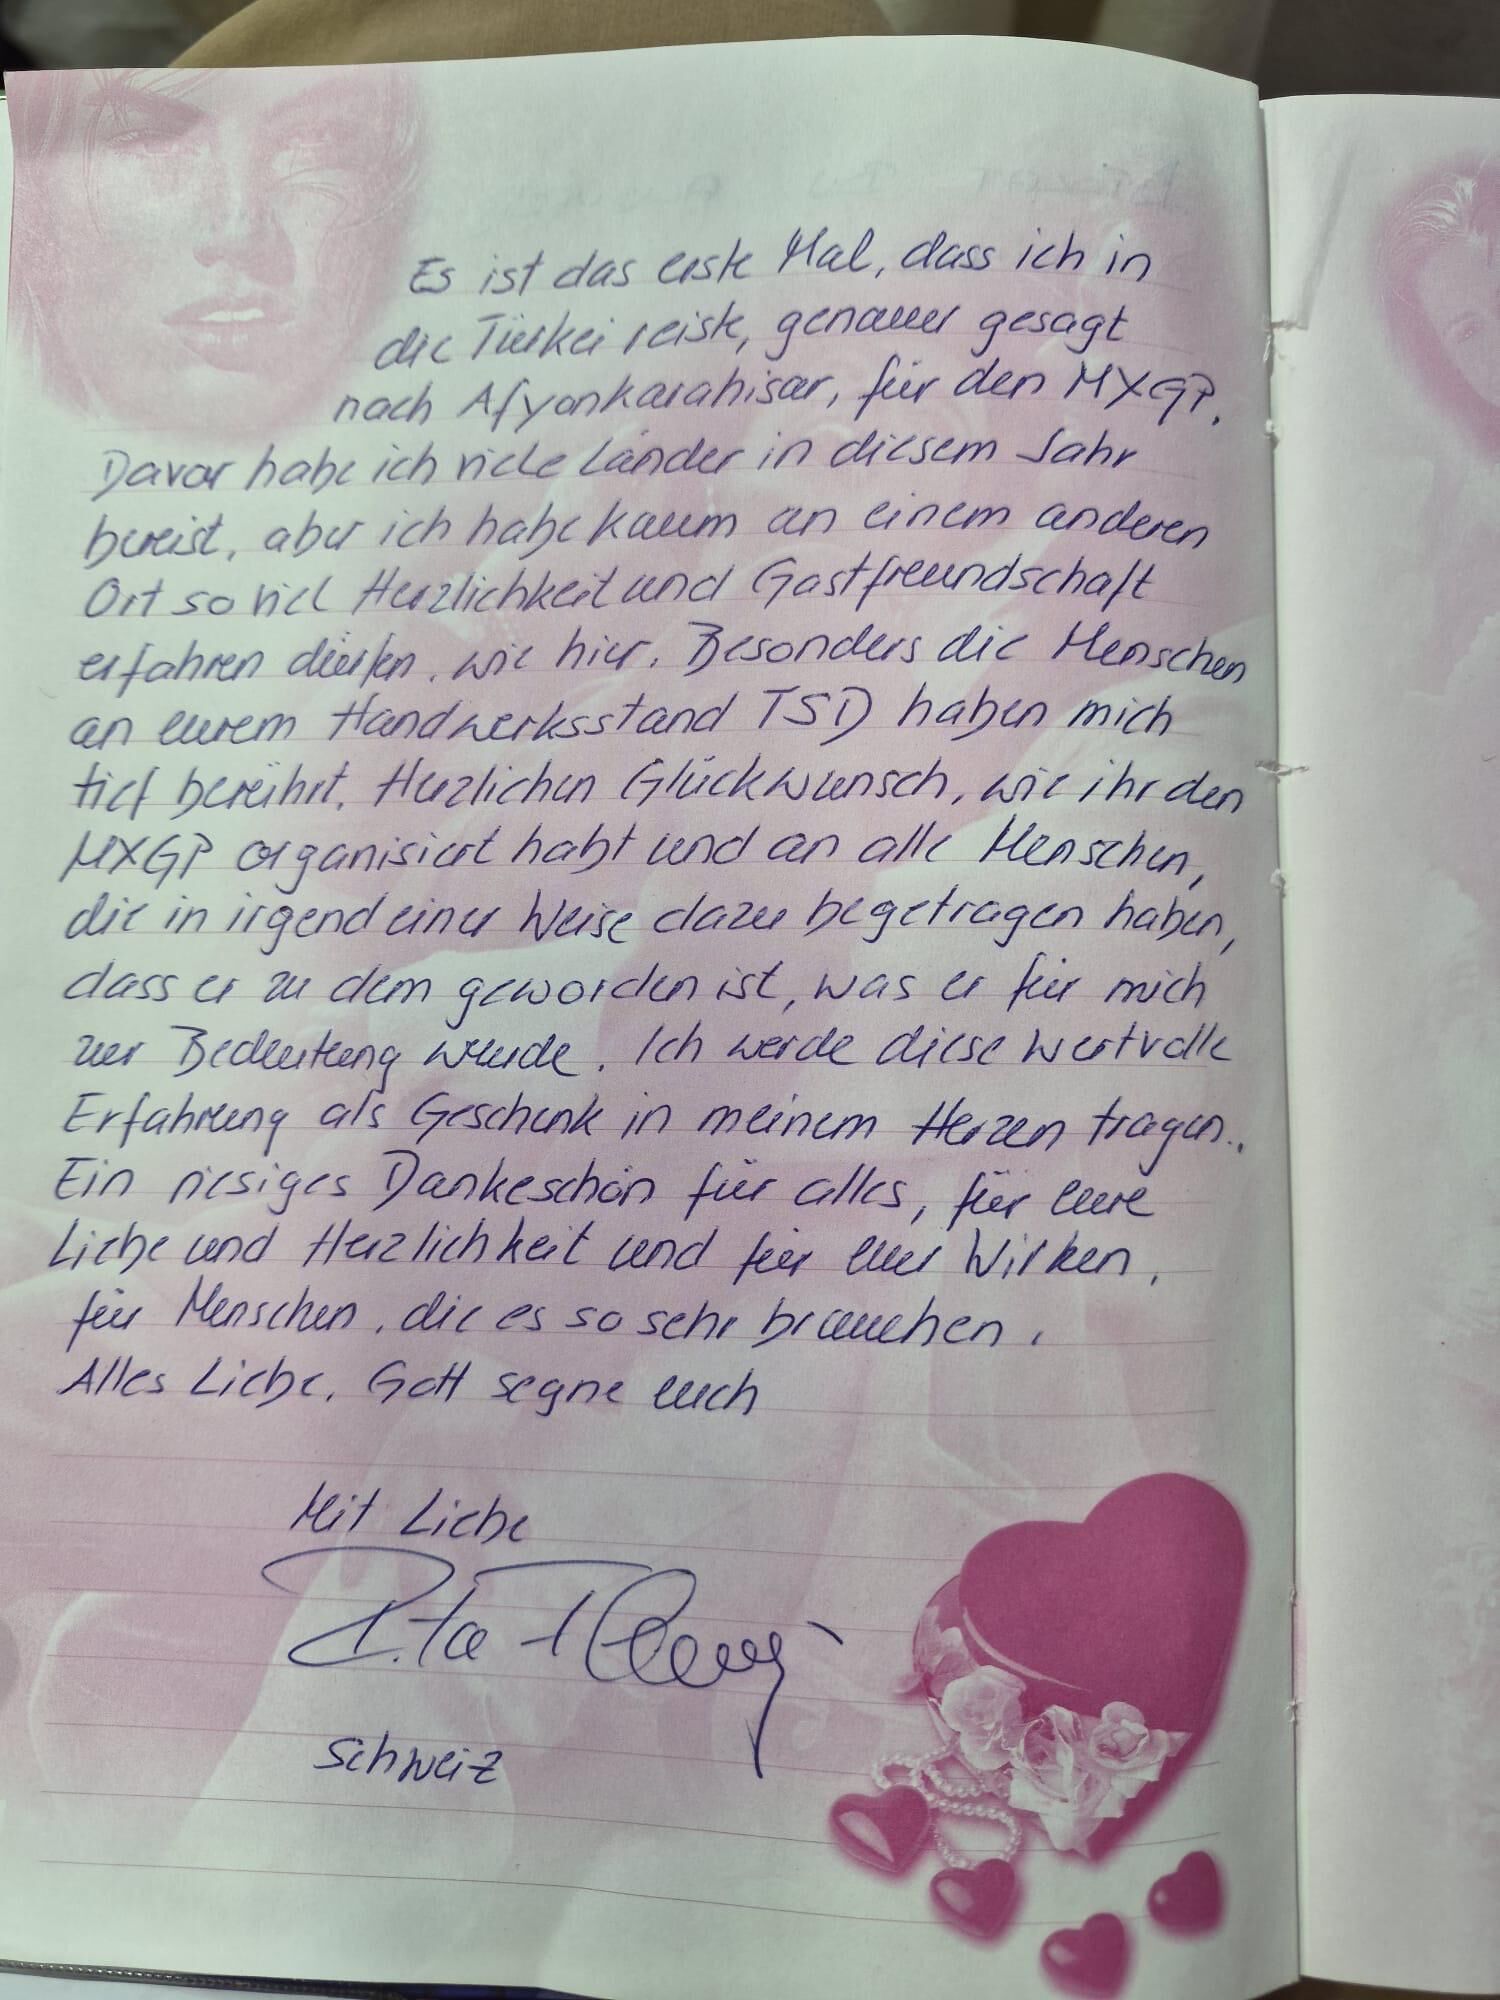 Es ist das erste Mal, dass ich in
die Türkei reiste, genauer gesagt
nach Afyonkarahisar, für den MXGP.
Davor habe ich viele Länder in diesem Jahr
bereist, aber ich habe kaum an einem anderen
Ort so viel Herzlichkeit und Gastfreundschaft
erfahren dürfen, wie hier. Besonders die Menschen
an eurem Handwerksstand TSD haben mich
tief berührt. Herzlichen Glückwunsch, wie ihr den
MXGP organisiert habt und an alle Menschen,
die in irgend einer Weise dazu begetragen haben,
dass er zu dem geworden ist, was er für mich
zur Bedeutung wurde. Ich werde diese wertvolle
Erfahrung als Geschenk in meinem Herzen tragen..
Ein riesiges Dankeschön für alles, für eure
Liebe und Herzlichkeit und für euer Wirken,
für Menschen, die es so sehr brauchen.
Alles Liebe, Gott segne euch
Mit Liebe
Schweiz